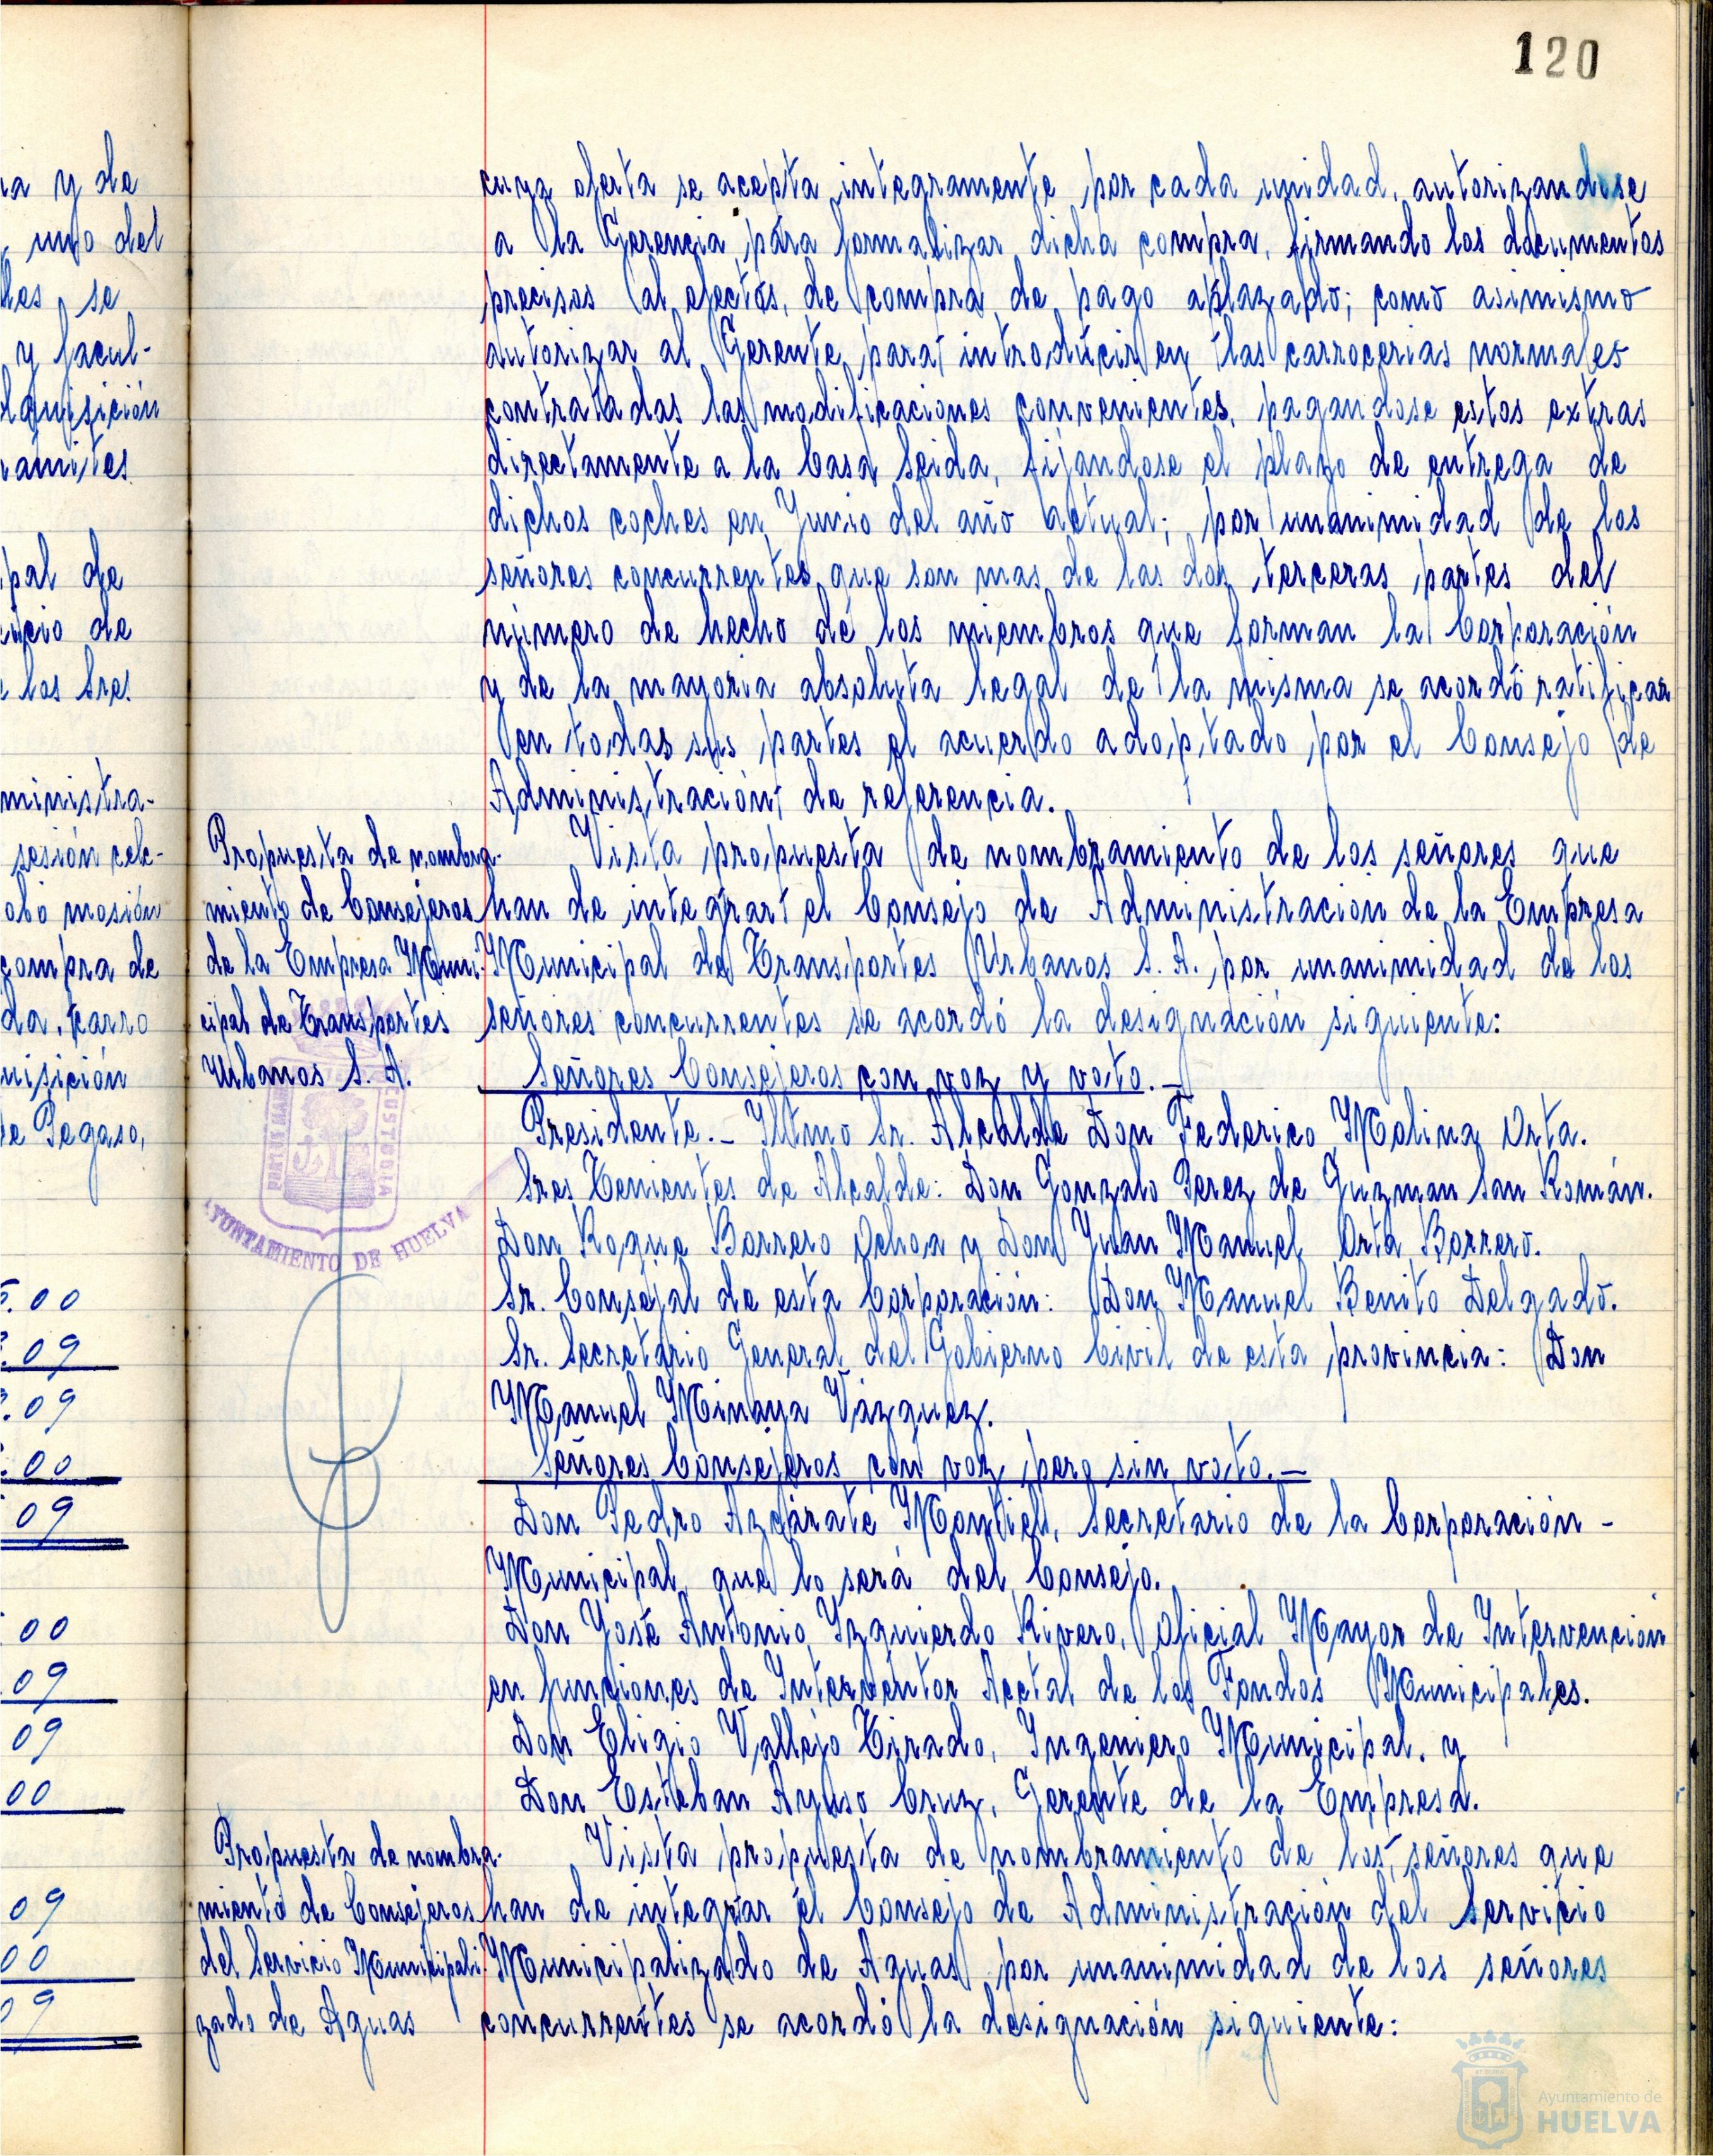 120
ia y de
uno del
les, se
y facul-
dquisición
rámites
pal de
icio de
e los Sres.
ministra-
sesión cele-
obó moción
compra de
da, carro
uisición
de Pegaso,
5.00
3.09
3.09
5.00
09
00
09
09
00
09
00
09
cuya oferta se acepta integramente por cada unidad, autorizandose
a la Gerencia para formalizar dicha compra, firmando los documentos
precisos al efectos, de compra de pago aplazado; como asimismo
autorizar al Gerente para introducir en las carrocerias normales
contratadas las modificaciones convenientes, pagandose estos extras
directamente a la Casa Seida, fijandose el plazo de entrega de
dichos coches en Junio del año actual; por unanimidad de los
señores concurrentes que son mas de las dos terceras partes del
número de hecho de los miembros que forman la Corporación
y de la mayoria absoluta legal de la misma se acordó ratificar
en todas sus partes el acuerdo adoptado por el Consejo de
Administración, de referencia.
Propuesta de nombra-
miento de Consejeros
de la Empresa Muni-
cipal de Transportes
Urbanos S. A.
Vista propuesta de nombramiento de los señores que
han de integrar el Consejo de Administración de la Empresa
Municipal de Transportes Urbanos S. A. por unanimidad de los
señores concurrentes se acordó la designación siguiente:
Señores Consejeros con voz y voto.-
Presidente.- Iltmo Sr. Alcalde Don Federico Molina Orta.
Sres Tenientes de Alcalde: Don Gonzalo Perez de Guzman San Román.
Don Roque Barrero Ochoa y Don Juan Manuel Orta Borrero.
Sr. Consejal de esta Corporación: Don Manuel Benito Delgado.
Sr. Secretario General del Gobierno Civil de esta provincia: Don
Manuel Minaya Vázquez.
Señores Consejeros con voz pero sin voto.-
Don Pedro Azcárate Montiel, Secretario de la Corporación -
Municipal que lo será del Consejo.
Don José Antonio Izquierdo Rivero, Oficial Mayor de Intervención
en funciones de Interventor Acctal de los Fondos Municipales.
Don Eligio Vallejo Tirado, Ingeniero Municipal. y
Don Esteban Ayuso Cruz, Gerente de la Empresa.
AYUNTAMIENTO DE HUELVA
PORTUS MARIS
CUSTODIA
Propuesta de nombra-
miento de Consejeros
del Servicio Municipali-
zado de Aguas
Vista propuesta de nombramiento de los señores que
han de integrar el Consejo de Administración del Servicio
Municipalizado de Aguas por unanimidad de los señores
concurrentes se acordó la designación siguiente:
Ayuntamiento de
HUELVA